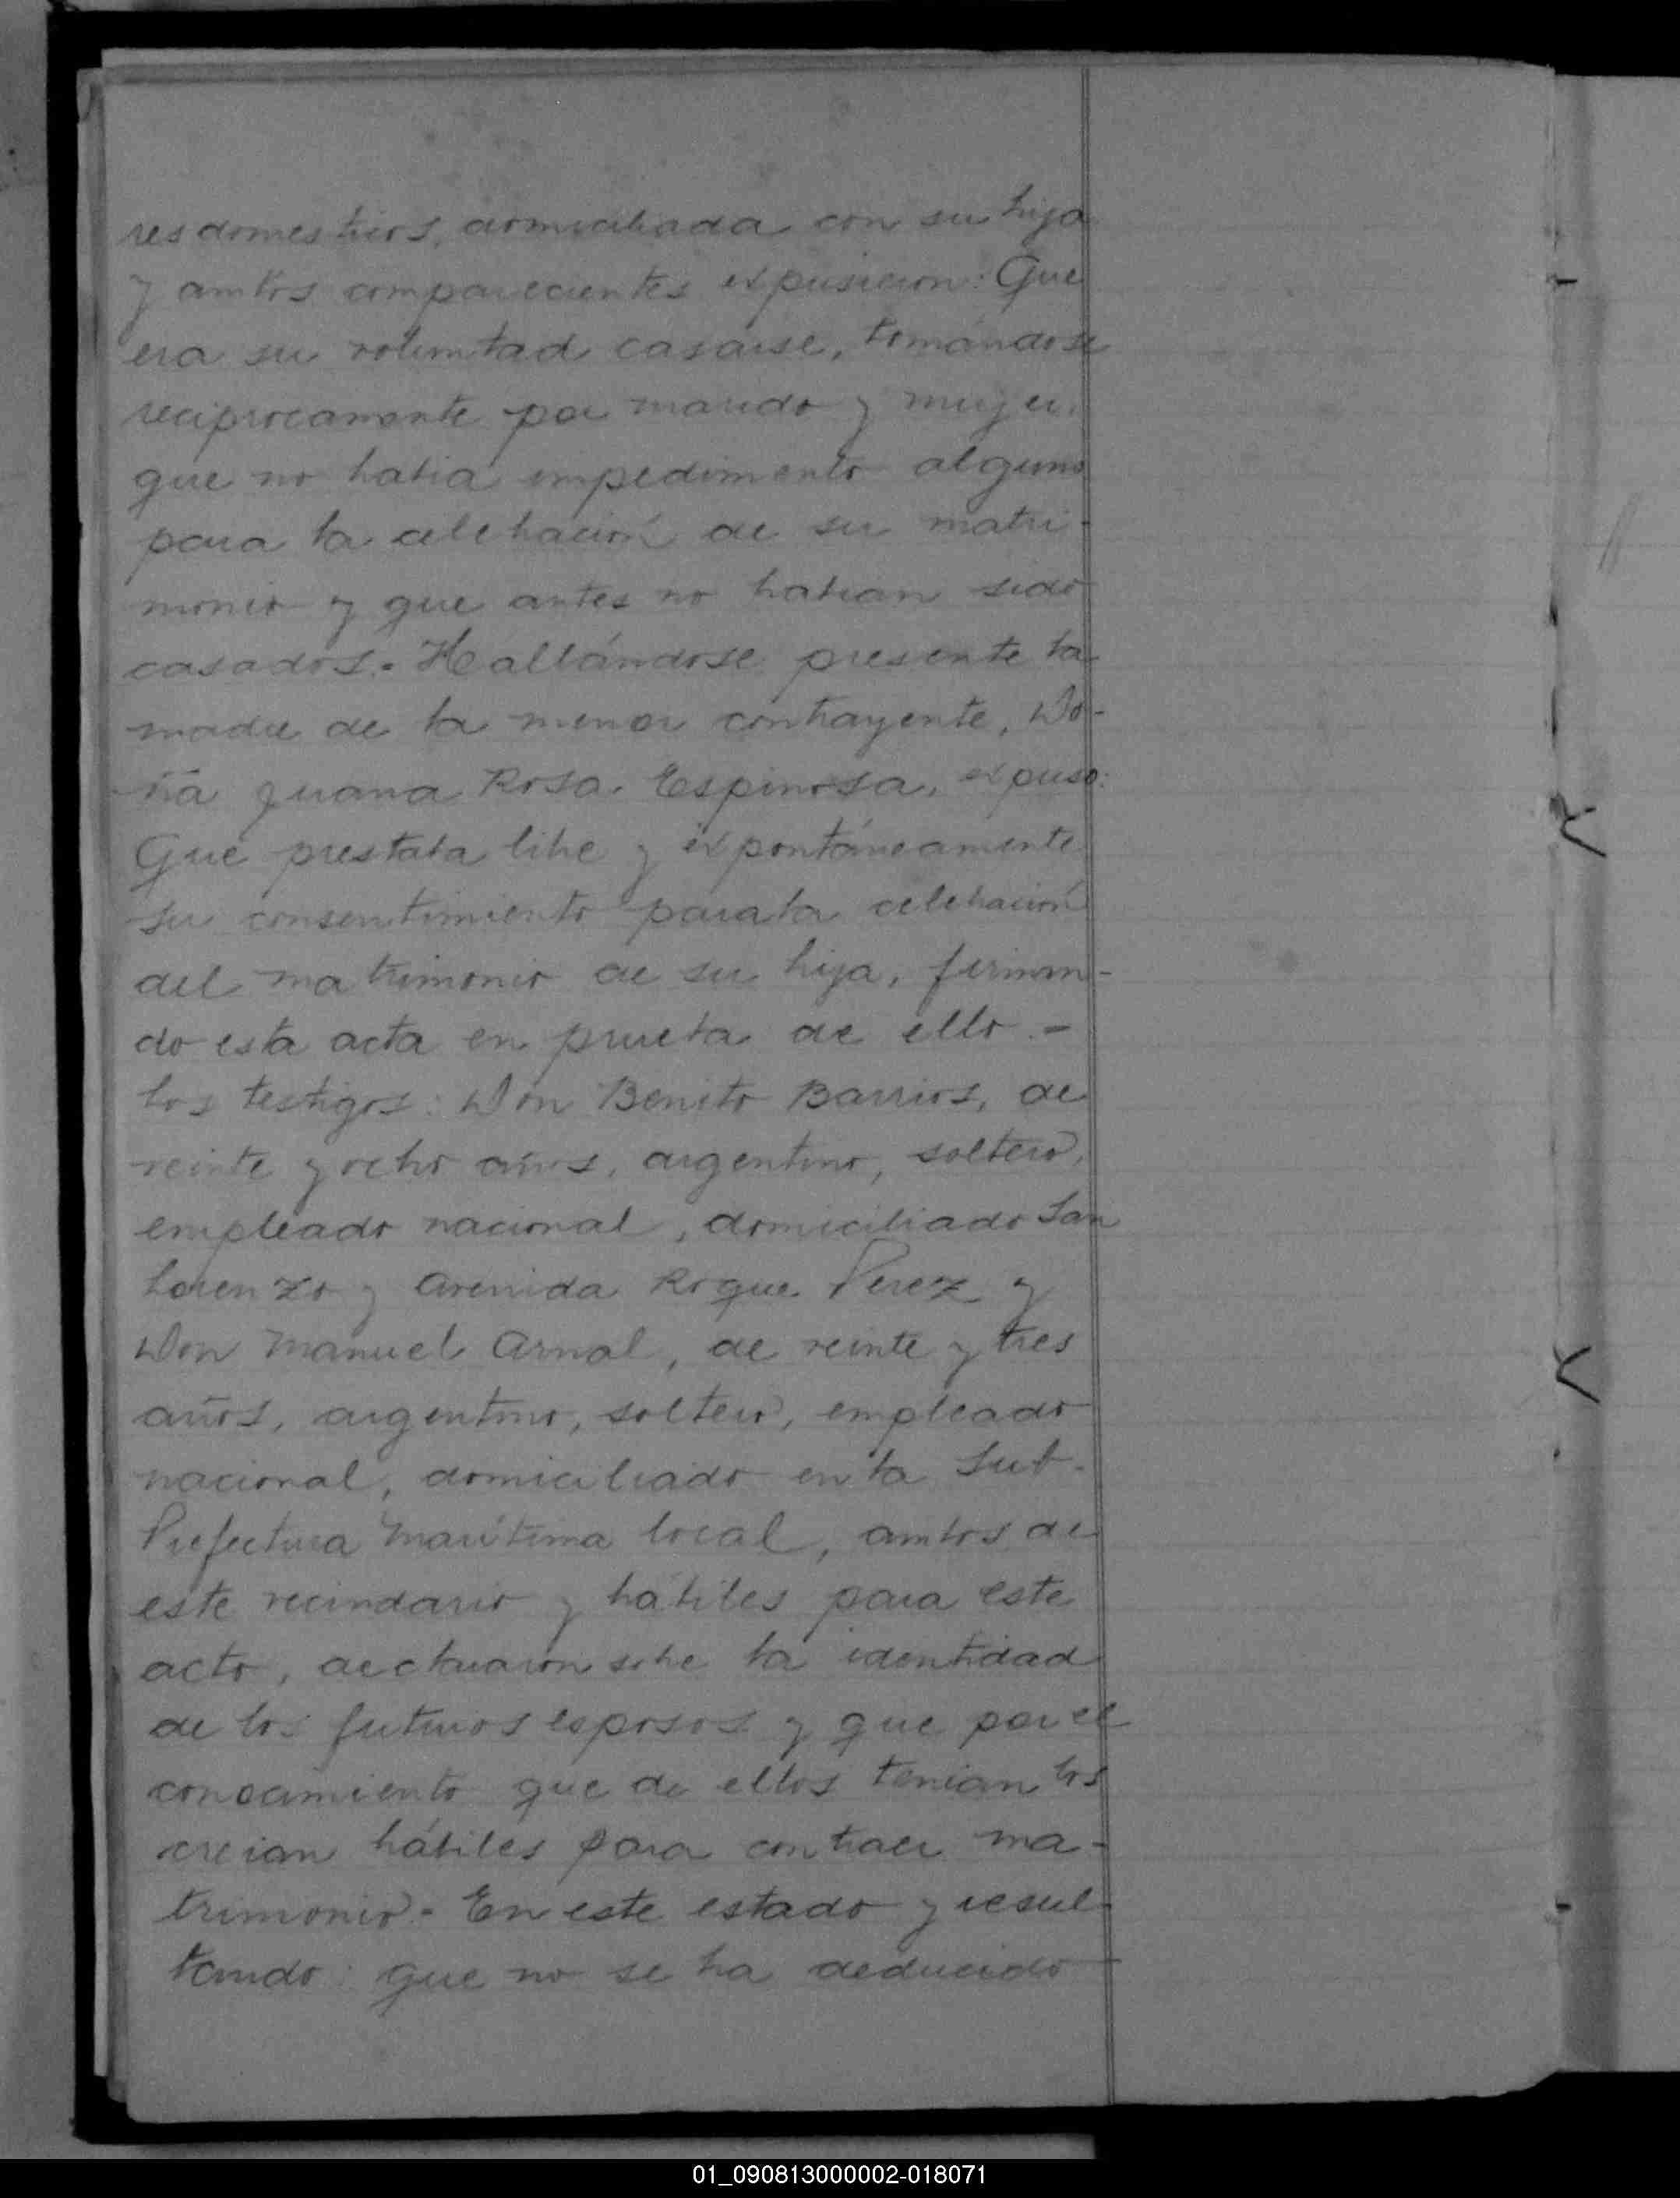 res domesticos, domiciliada con su hija
y ambos comparecientes expusieron: Que
era su voluntad casarse, tomándose
reciprocamente por marido y mujer,
que no habia impedimento alguno
para la celebración de su matri-
monio y que antes no habian sido
casados.- Hallándose presente la
madre de la menor contrayente, Do-
ña Juana Rosa Espinosa, expuso:
Que prestaba libre y expontáneamente
su consentimiento para la celebración
del matrimonio de su hija, firman-
do esta acta en prueba de ello.-
Los testigos: Don Benito Barrios, de
veinte y ocho años, argentino, soltero,
empleado nacional, domiciliado San
Lorenzo y Avenida Roque Perez y
Don Manuel Arnal, de veinte y tres
años, argentino, soltero, empleado
nacional, domiciliado en la Sub-
Prefectura Marítima local, ambos de
este vecindario y hábiles para este
acto, declararon sobre la identidad
de los futuros esposos y que por el
conocimiento que de ellos tenian los
creian hábiles para contraer ma-
trimonio.- En este estado y resul-
tando: que no se ha deducido
01_090813000002-018071